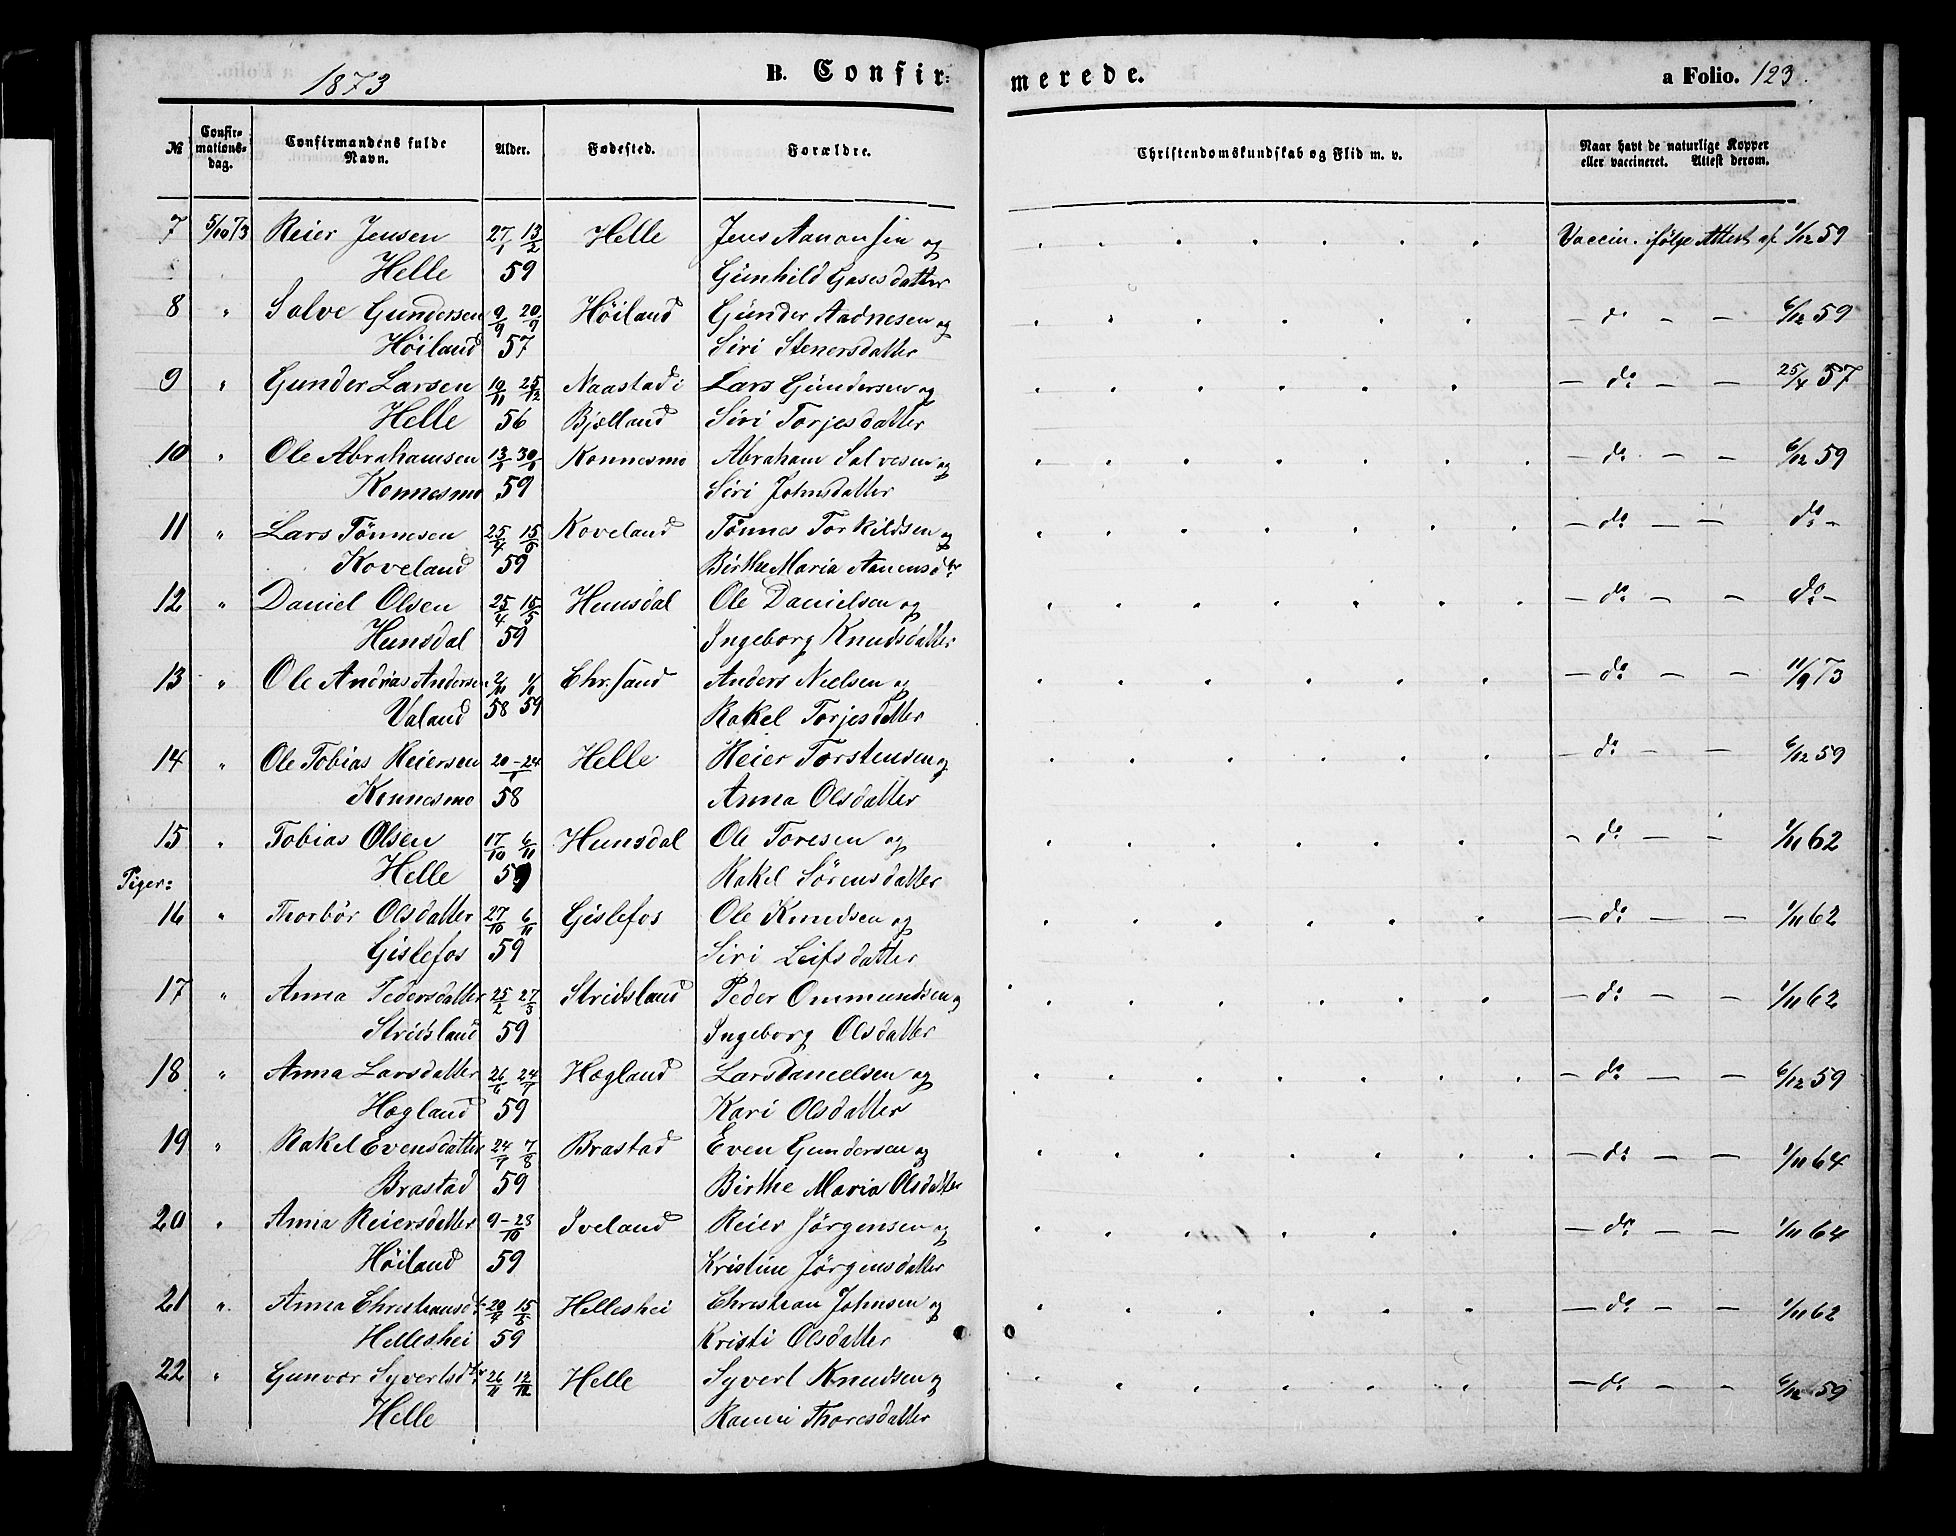 1873 B. Confir= merede. a Folio. 123.
№ Confir=mations=dag. Confirmandens fulde Navn. Alder. Fødested. Forældre. Christendomskundskab og Flid m. v. Naar havt de naturlige Kopper eller vaccineret. Attest derom.
7 5/10 73 Reier Jensen 27/1 13/2 Helle Jens Aanonsen og Vaccin. ifölge Attest af 1/12 59
Helle 59 Gunhild Gasesdatter
8 " Salve Gundersen 9/9 20/9 Höiland Gunder Aadnesen og - do - - 6/12 59
Höiland 57 Siri Stenersdatter
9 " Gunder Larsen 19/11 25/12 Naastad i Lars Gundersen og - do - - 25/4 57
Helle 56 Bjelland Siri Torjesdatter
10 " Ole Abrahamsen 13/1 30/1 Konnesmo Abraham Salvesen og - do - - 6/12 59
Konnesmo 59 Siri Johnsdatter
11 " Lars Tönnesen 25/4 15/5 Koveland Tönnes Torkildsen og - do - - do -
Koveland 59 Birthe Maria Aanensdtr
12 " Daniel Olsen 25/4 15/5 Hunsdal Ole Danielsen og - do - - do -
Hunsdal 59 Ingeborg Knudsdatter
13 " Ole Andrias Andersen 2/10 1/1 Chr.sand Anders Nielsen og - do - - 11/9 73
Valand 58 59 Rakel Torjesdatter
14 " Ole Tobias Reiersen 20-24/1 Helle Reier Torstensen og - do - - 6/12 59
Konnesmo 58 Anna Olsdatter
15 " Tobias Olsen 17/10 6/11 Hunsdal Ole Toresen og - do - - 1/11 62
Helle 59 Rakel Sörensdatter
Piger:
16 " Thorbör Olsdatter 27/10 6/11 Gislefos Ole Knudsen og - do - - 1/11 62
Gislefos 59 Siri Leifsdatter
17 " Anna Pedersdatter 25/2 27/3 Stridsland Peder Ommundsen og - do - - 1/11 62
Stridsland 59 Ingeborg Olsdatter
18 " Anna Larsdatter 26/6 24/7 Hægland Lars Danielsen og - do - - 6/12 59
Hægland 59 Kari Olsdatter
19 " Rakel Evensdatter 24/7 7/8 Brastad Even Gundersen og - do - - 1/11 64
Brastad 59 Birthe Maria Olsdatter
20 " Anna Reiersdatter 9-28/10 Iveland Reier Jörgensen og - do - - 1/11 64
Höiland 59 Kristine Jörgensdatter
21 " Anna Christiansdtr 20/4 15/5 Helleshei Christian Johnsen og - do - - 1/11 62
Helleshei 59 Kristi Olsdatter
22 " Gunvor Syvertsdtr 26/11 12/12 Helle Syvert Knudsen og - do - - 6/12 59
Helle Ranni Thoresdatter